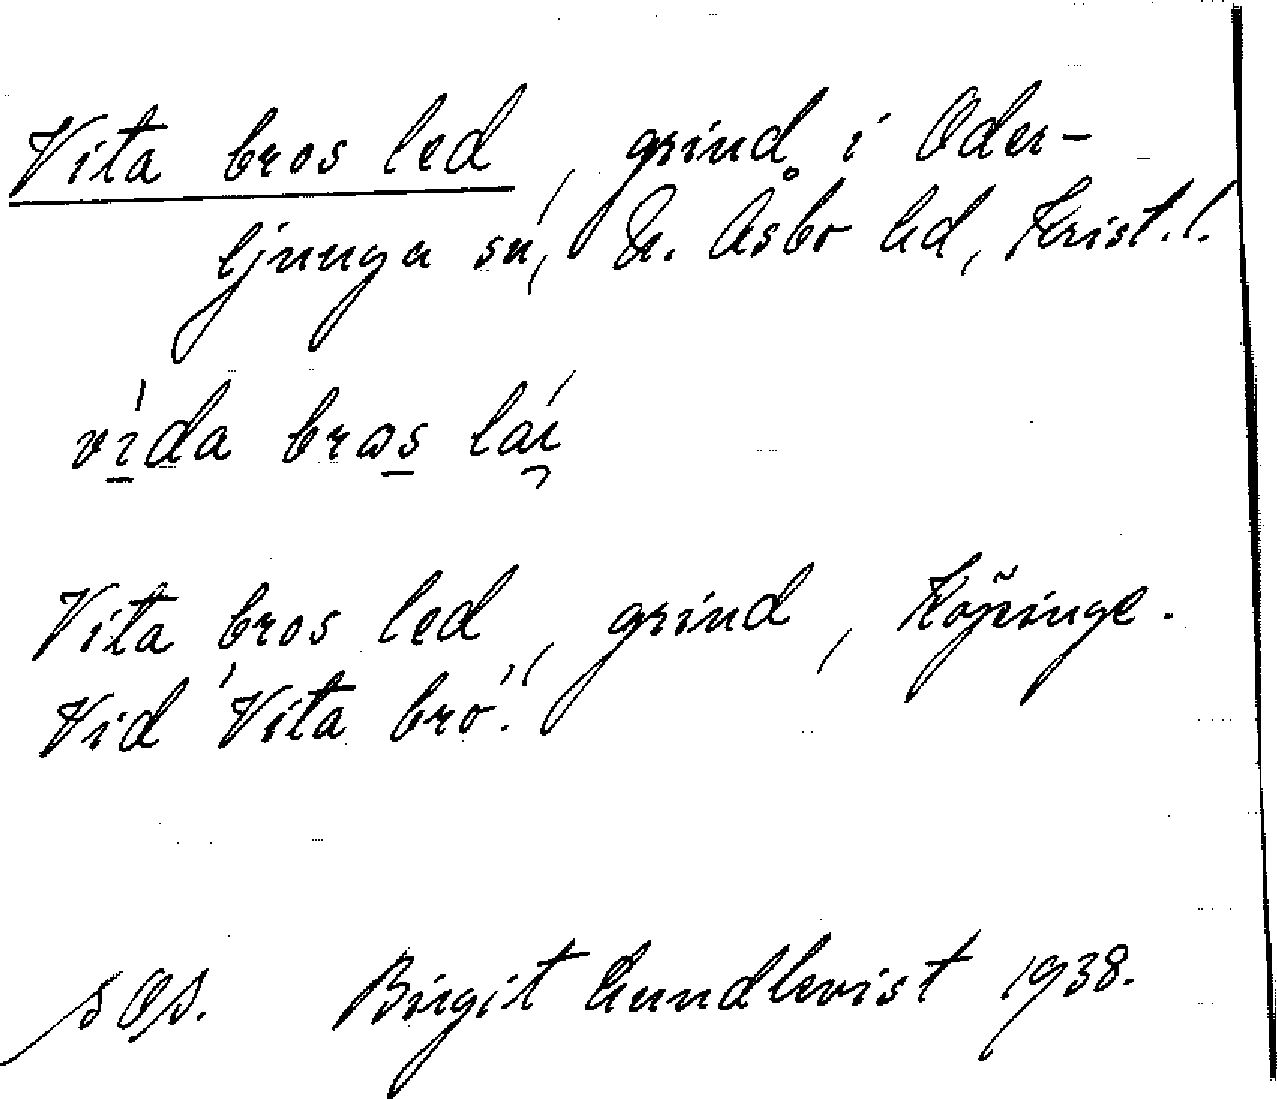 Vita bros led, grind i Oder-
ljunga sn, N. Åsbo hd, Krist. l.
vida bros lái
Vita bros led, grind, Köpinge.
Vid "Vita bro".
Birgit Lundkvist 1938.